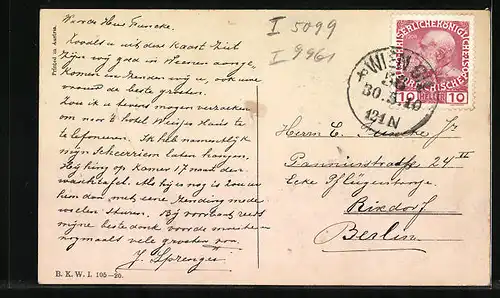 Waarde Heer Funcke.
Zooals u uit deze kaart ziet
zijn wij goed in Weenen aange-
komen en zenden wij u, ook uwe
vriend de beste groeten.
Zou ik u tevens mogen verzoeken
om naar 't hotel Weisses Haus te
telefoneeren. Ik heb namentlijk
mijn Scheerriem laten hangen.
Hij hing op kamer 17 naast der
waschtafel. Als hij er nog is zou u
hem dan met eene zending mede
willen sturen. Bij voorbaat reeds
mijne beste dank voor de moeite en
nogmaals vele groeten van
J. Sprenger
Printed in Austria
B. K. W. I. 195-20.
I 5099
I 9961
KAISERLICHE KÖNIGLICHE
ÖSTERREICHISCHE
10 HELLER 10
WIEN
30.5.10
12 1 N
Herrn E. Funcke Jr
Pannierstrasse 24 II
Ecke Pflügerstrasse
Rixdorf
Berlin